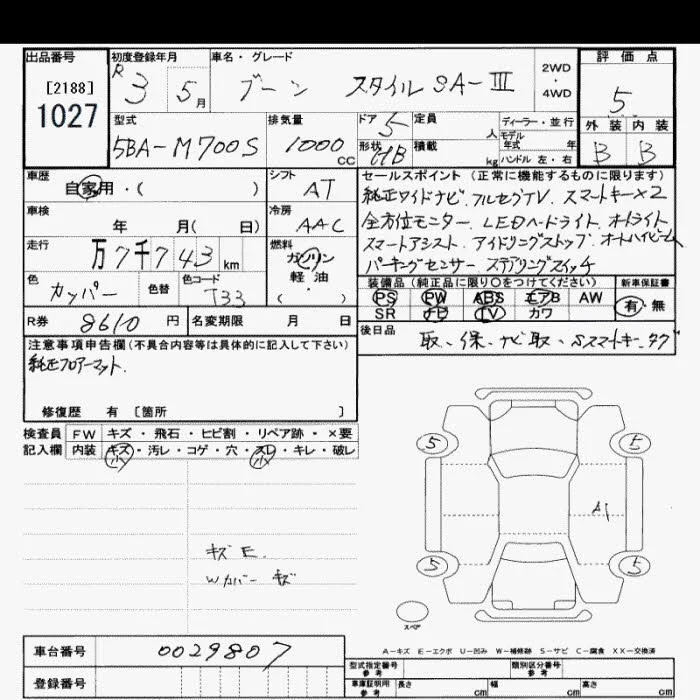 出品番号 初度登録年月 車名・グレード 2WD ・ 4WD 評価点
[2188] 1027
R3 5月 ブーン スタイル SA-Ⅲ 5
型式 排気量 ドア 5 定員 人 ディーラー・並行 外装 内装
5BA-M700S 1000 CC 形状 HB 積載 kg モデル年式 年 ハンドル 左・右 B B
車歴 自家用・( ) シフト AT
セールスポイント (正常に機能するものに限ります)
純正ワイドナビ. フルセグTV. スマートキー×2
全方位モニター. LEDヘッドライト. オートライト
スマートアシスト. アイドリングストップ. オートハイビーム
パーキングセンサー. ステアリングスイッチ
車検 年 月( 日) 冷房 AAC
走行 万7千743 km 燃料 ガソリン 軽油 ( )
色 カッパー 色替 色コード T33
装備品 (純正品に限り○をつけてください) 新車保証書
PS PW ABS エアB AW 有・無
SR ナビ TV カワ
R券 8610 円 名変期限 月 日
後日品 取、保、ナビ取、Sスマートキー、タグ
注意事項申告欄 (不具合内容等は具体的に記入して下さい)
純正フロアーマット.
修復歴 有 [箇所 ]
検査員 FW キズ・飛石・ヒビ割・リペア跡・×要
記入欄 内装 キズ・汚レ・コゲ・穴・スレ・キレ・破レ
小 小
5 5
A1
キズ E.
Wカバー キズ
5 5
スペア
A-キズ E-エクボ U-凹み W-補修跡 S-サビ C-腐食 XX-交換済
車台番号 0029807
型式指定番号 参考 類別区分番号 参考
登録番号 車庫証明用 参考 長さ cm 幅 cm 高さ cm